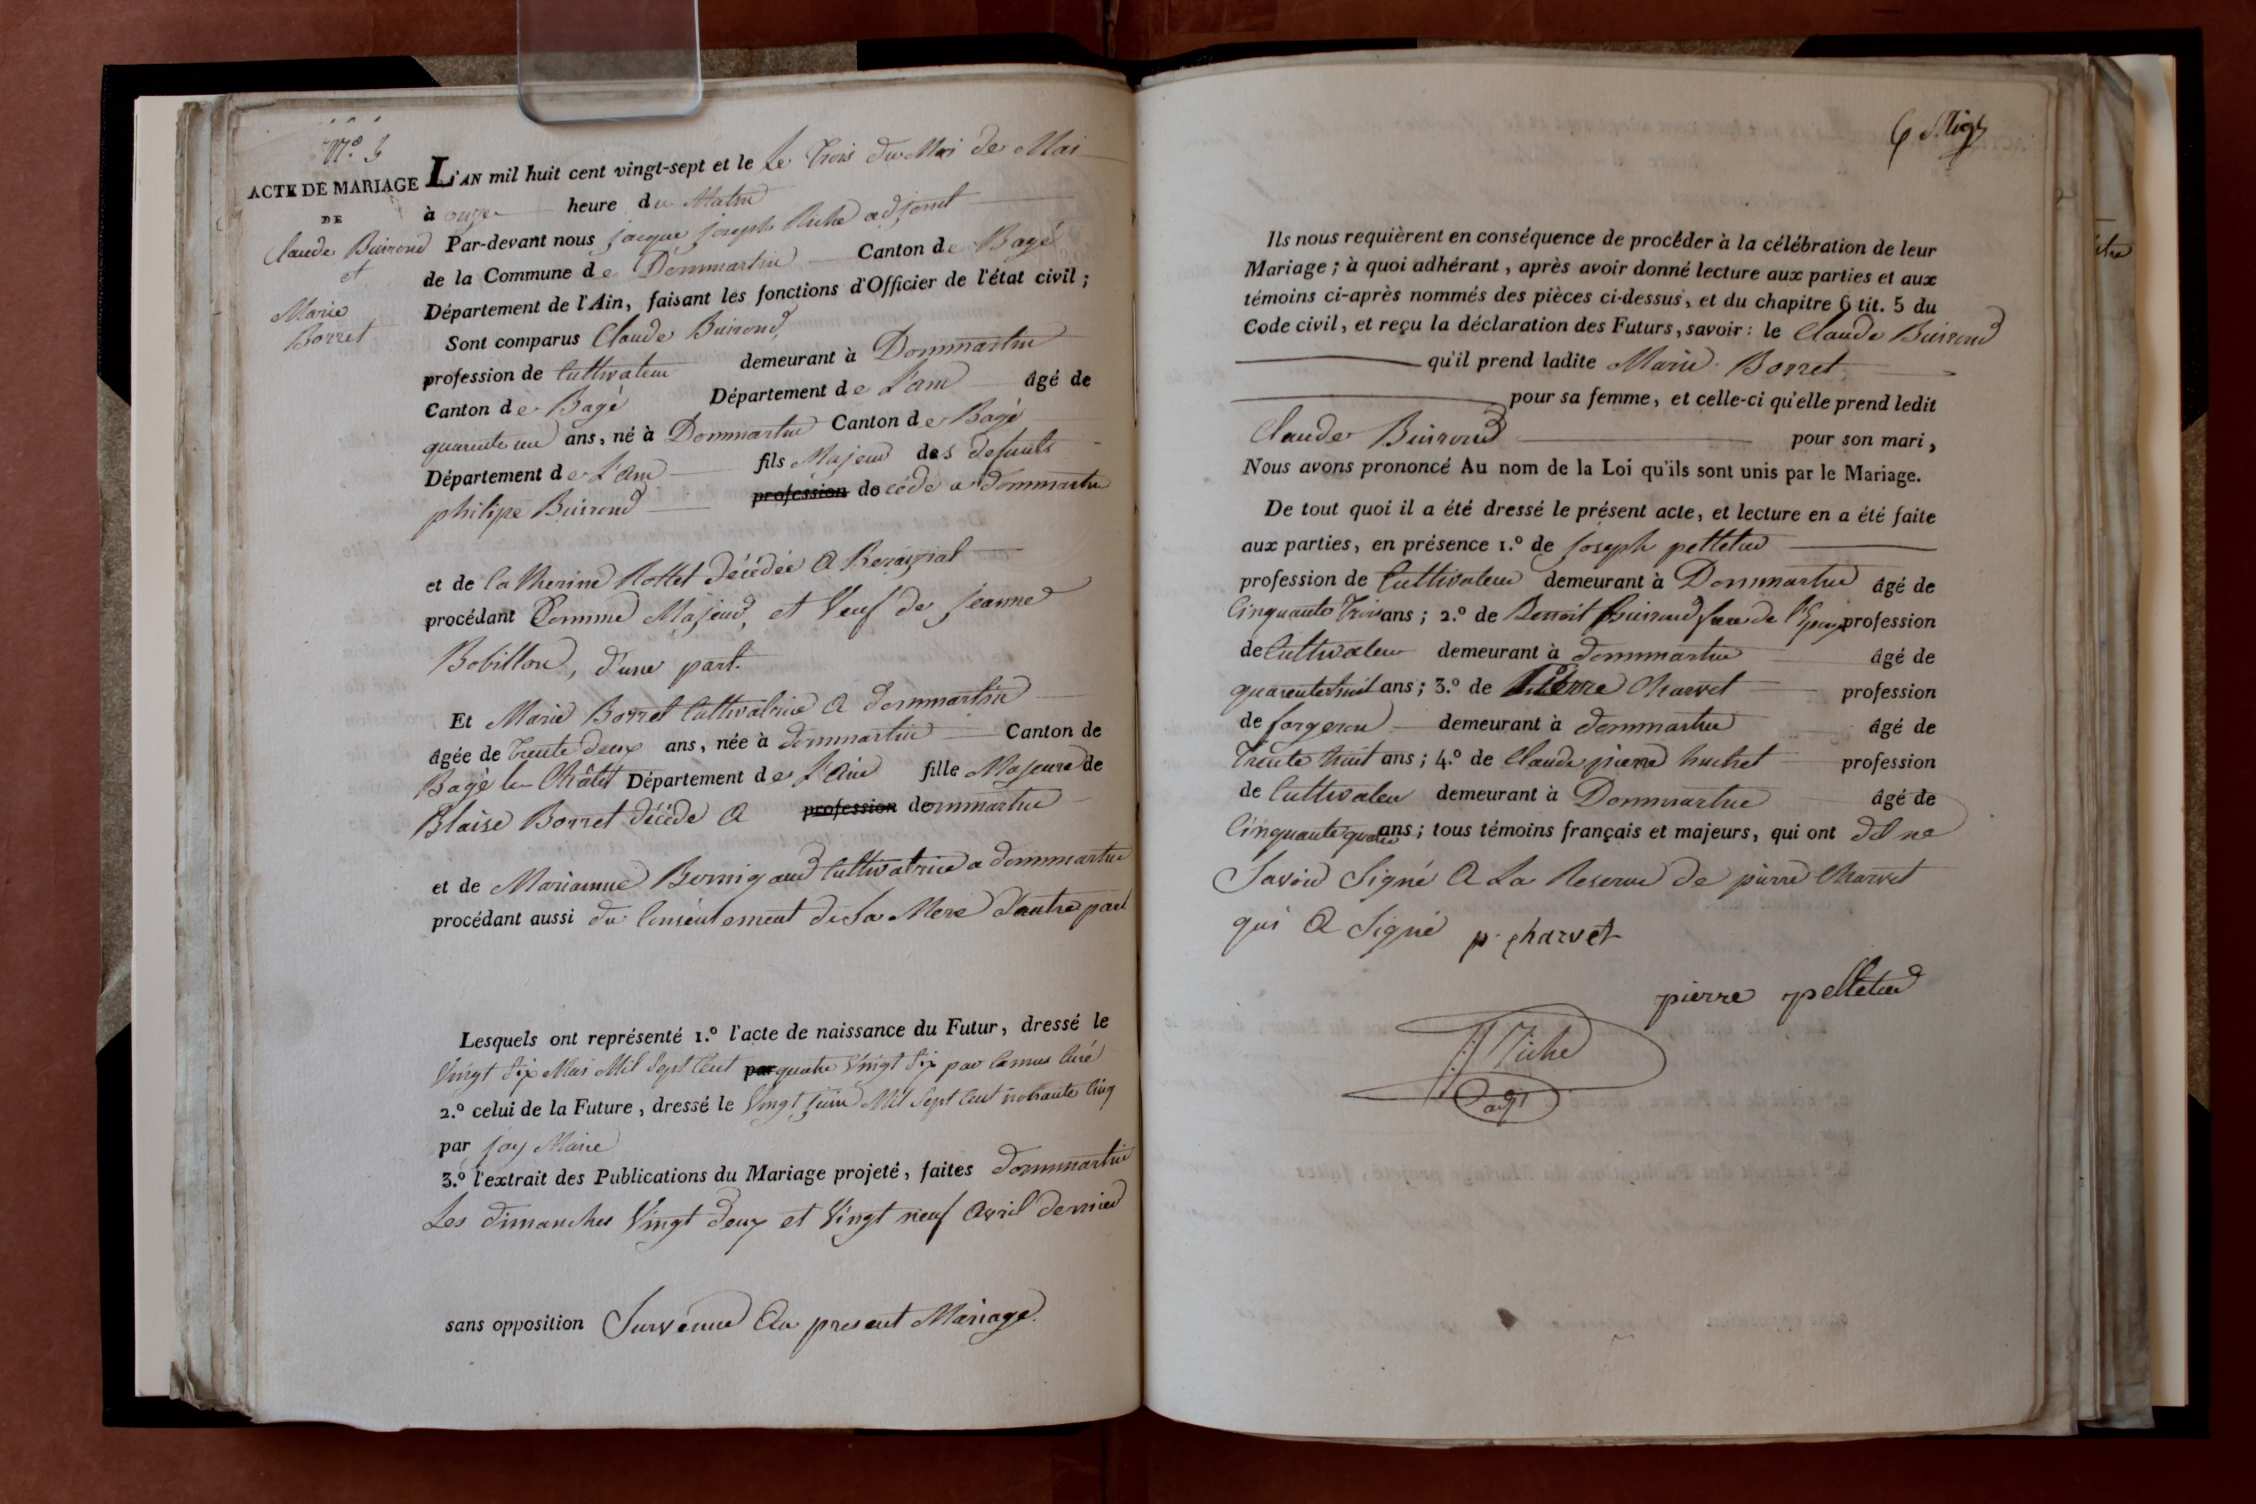 N.º 3
ACTE DE MARIAGE
DE
Claude Buirond
et
Marie
Borret
L'AN mil huit cent vingt-sept et le Le Trois du Moi de Mai
à onze heure du Matin
Par-devant nous jacque joseph Riche adjoint
de la Commune de Dommartin Canton de Bagé
Département de l'Ain, faisant les fonctions d'Officier de l'état civil ;
Sont comparus Claude Buirond
profession de Cultivateur demeurant à Dommartin
Canton de Bagé Département de L'ain âgé de
quarente un ans, né à Dommartin Canton de Bagé
Département de L'ain fils Majeur des defunts
philipe Buirond profession decédé a dommartin
et de Catherine Rollet décédée A Bereiziat
procédant Comme Majeur, et Veuf de jeanne
Bobillon, d'une part.
Et Marie Borret Cultivatrice A dommartin
âgée de Trente deux ans, née à dommartin Canton de
Bagé le Châtel Département de L'Ain fille Majeure de
Blaise Borret décédé A profession dommartin
et de Marianne Bernigaud Cultivatrice a dommartin
procédant aussi du Consentement de Sa Mere d'autre part
Lesquels ont représenté 1.º l'acte de naissance du Futur, dressé le
Vingt Six Mai Mil Sept Cent par quatre Vingt Six par Camus Curé
2.º celui de la Future, dressé le Vingt juin Mil Sept Cent nonante Cinq
par joly Maire
3.º l'extrait des Publications du Mariage projeté, faites dommartin
Les dimanches Vingt deux et Vingt neuf Avril dernier
sans opposition Survenue Au present Mariage.
Ils nous requièrent en conséquence de procéder à la célébration de leur
Mariage ; à quoi adhérant, après avoir donné lecture aux parties et aux
témoins ci-après nommés des pièces ci-dessus, et du chapitre 6 tit. 5 du
Code civil, et reçu la déclaration des Futurs, savoir : le Claude Buirond
qu'il prend ladite Marie Borret
pour sa femme, et celle-ci qu'elle prend ledit
Claude Buirond pour son mari,
Nous avons prononcé Au nom de la Loi qu'ils sont unis par le Mariage.
De tout quoi il a été dressé le présent acte, et lecture en a été faite
aux parties, en présence 1.º de joseph pelletier
profession de Cultivateur demeurant à Dommartin âgé de
Cinquante Trois ans ; 2.º de Benoit Buirond frere de l'Epoux profession
de Cultivateur demeurant à dommartin âgé de
quarente huit ans ; 3.º de Pierre Charvet profession
de forgeron demeurant à dommartin âgé de
Trente huit ans ; 4.º de Claude pierre huchet profession
de Cultivateur demeurant à Dommartin âgé de
Cinquante quatre ans ; tous témoins français et majeurs, qui ont dit ne
Savoir Signé A La Reserve de pierre Charvet
qui A Signé p. charvet
pierre pelletier
J. J. Riche
adj